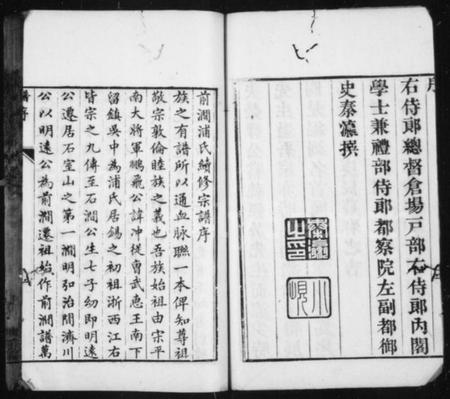 序
右侍郎總督倉場戸部右侍郎內閣
學士兼禮部侍郎都察院左副都御
史秦瀛撰
秦瀛之印
小峴
前澗浦氏續修宗譜序
族之有譜所以通血脉聯一本俾知尊祖
敬宗敦倫睦族之義也吾族始祖由宋平
南大將軍鵬飛公諱沖從曹武惠王南下
留鎮吳中為浦氏居錫之初祖浙西江右
皆宗之九傳至石澗公生七子幼即明遠
公遷居石室山之第一澗明弘治間濟川
公以明遠公為前澗遷祖始作前澗譜萬
譜序